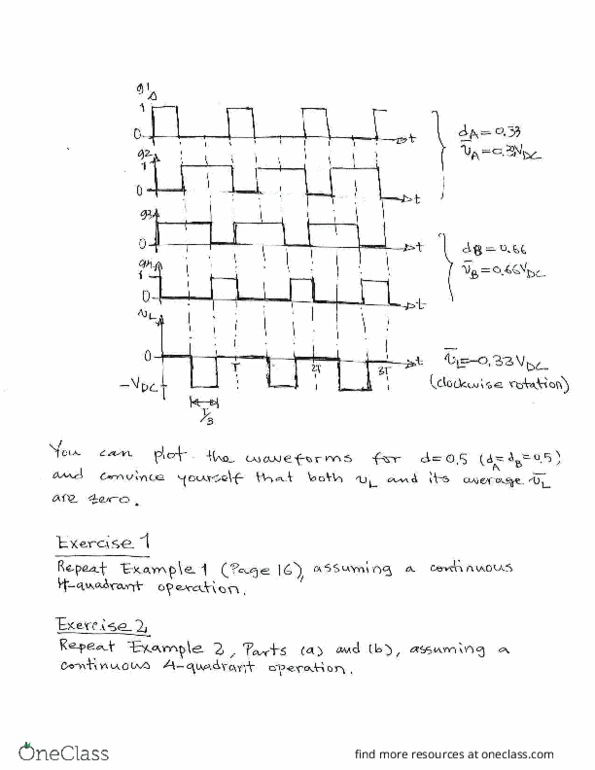 g1
1
0
t
dA = 0.33
v̅A = 0.33VDC
g2
1
0
t
g3
0
t
dB = 0.66
v̅B = 0.66VDC
g4
1
0
t
vL
0
T
2T
3T
t
v̅L = -0.33VDC
-VDC
(clockwise rotation)
T/3
You can plot the waveforms for d=0.5 (dA=dB=0.5)
and convince yourself that both vL and its average v̅L
are zero.
Exercise 1
Repeat Example 1 (Page 16), assuming a continuous
4-quadrant operation.
Exercise 2
Repeat Example 2, Parts (a) and (b), assuming a
continuous 4-quadrant operation.
OneClass
find more resources at oneclass.com